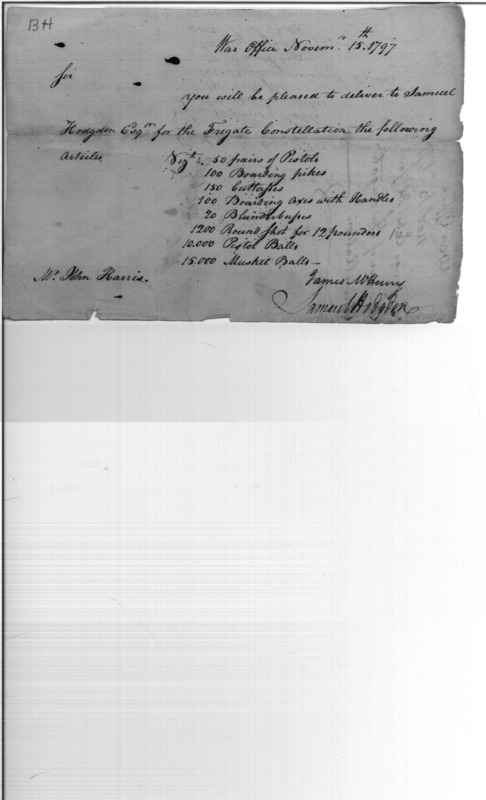 BH
War Office Novemr. 15th. 1797
Sir
You will be pleased to deliver to Samuel
Hodgdon Esqr. for the Fregate Constellation the following
Articles Vizt. 50 pairs of Pistols
100 Boarding pikes
150 Cutlasses
100 Boarding Axes with Handles
20 Blunderbusses
1200 Round Shot for 12 pounders
10.000 Pistol Balls
15.000 Musket Balls—
Mr. John Harris.
James McHenry
Samuel Hodgdon